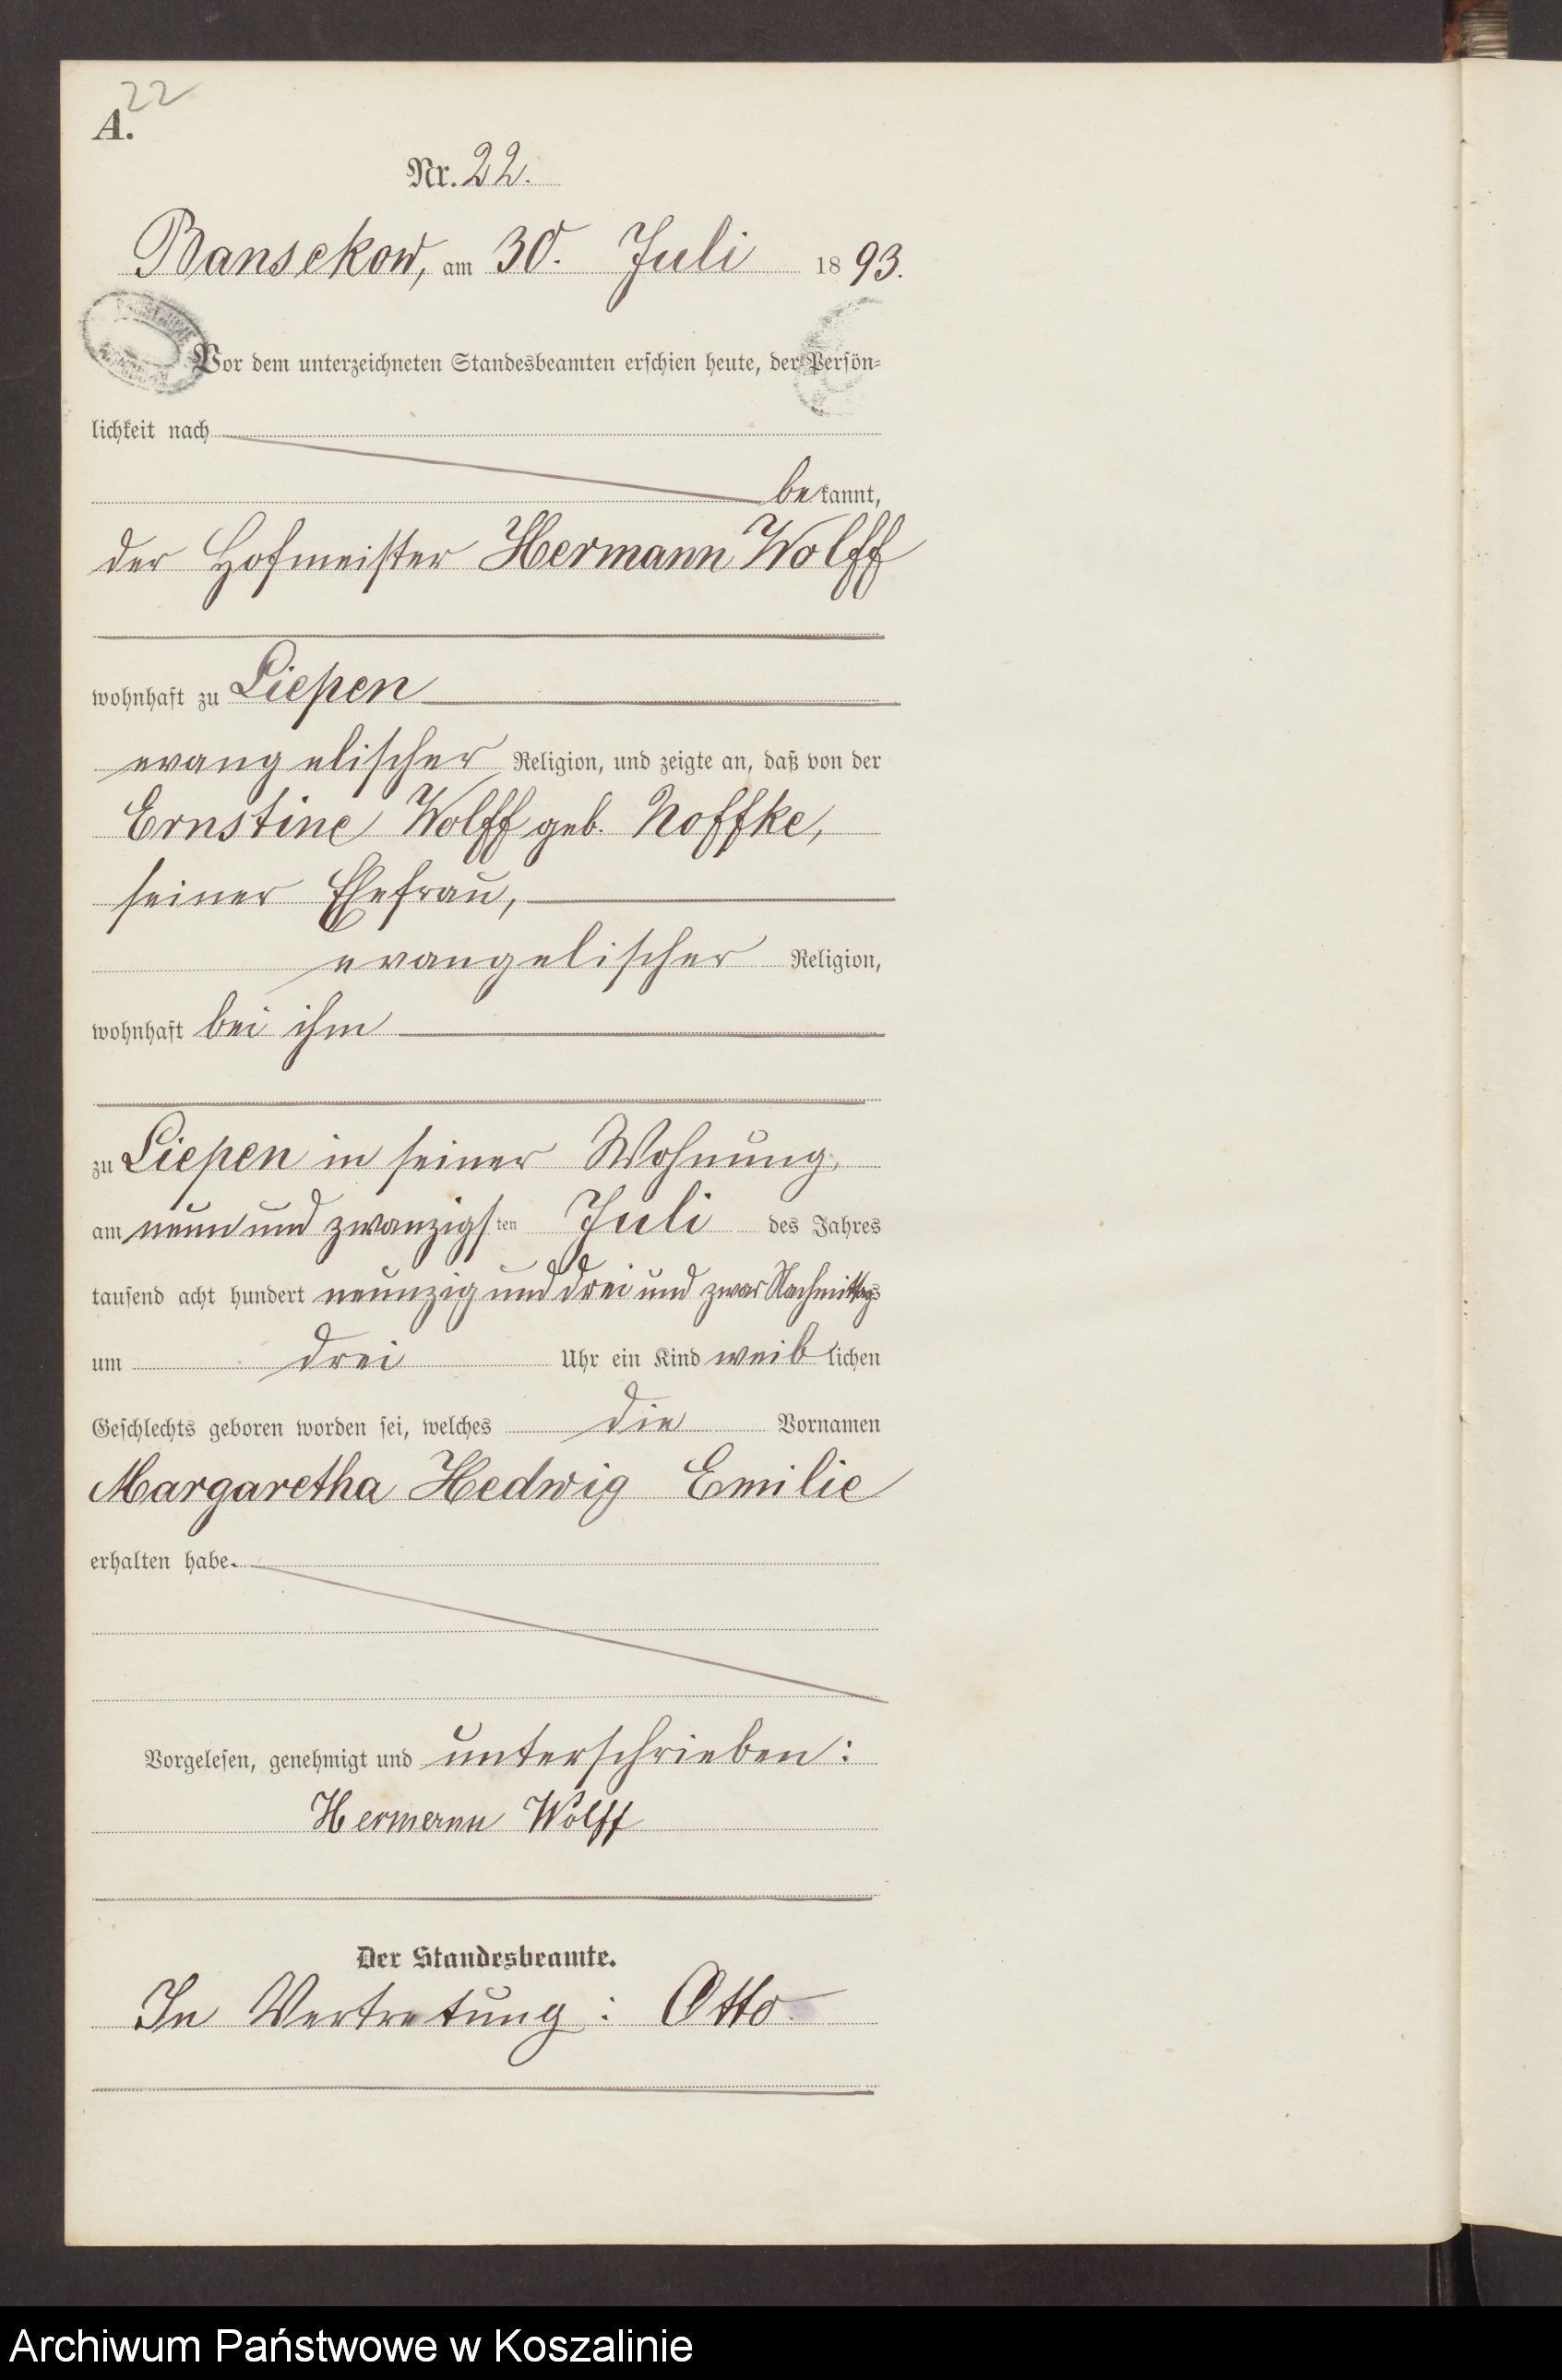 22
A.
Nr. 22.
Bansekow, am 30. Juli 1893.
Vor dem unterzeichneten Standesbeamten erschien heute, der Persön=
lichkeit nach
bekannt,
der Hofmeister Hermann Wolff
wohnhaft zu Liepen
evangelischer Religion, und zeigte an, daß von der
Ernstine Wolff geb. Noffke,
seiner Ehefrau,
evangelischer Religion,
wohnhaft bei ihm
zu Liepen in seiner Wohnung,
am neun und zwanzigsten Juli des Jahres
tausend acht hundert neunzig und drei und zwar Nachmittags
um drei Uhr ein Kind weiblichen
Geschlechts geboren worden sei, welches die Vornamen
Margaretha Hedwig Emilie
erhalten habe.
Vorgelesen, genehmigt und unterschrieben:
Hermann Wolff
Der Standesbeamte.
In Vertretung: Otto
Archiwum Państwowe w Koszalinie